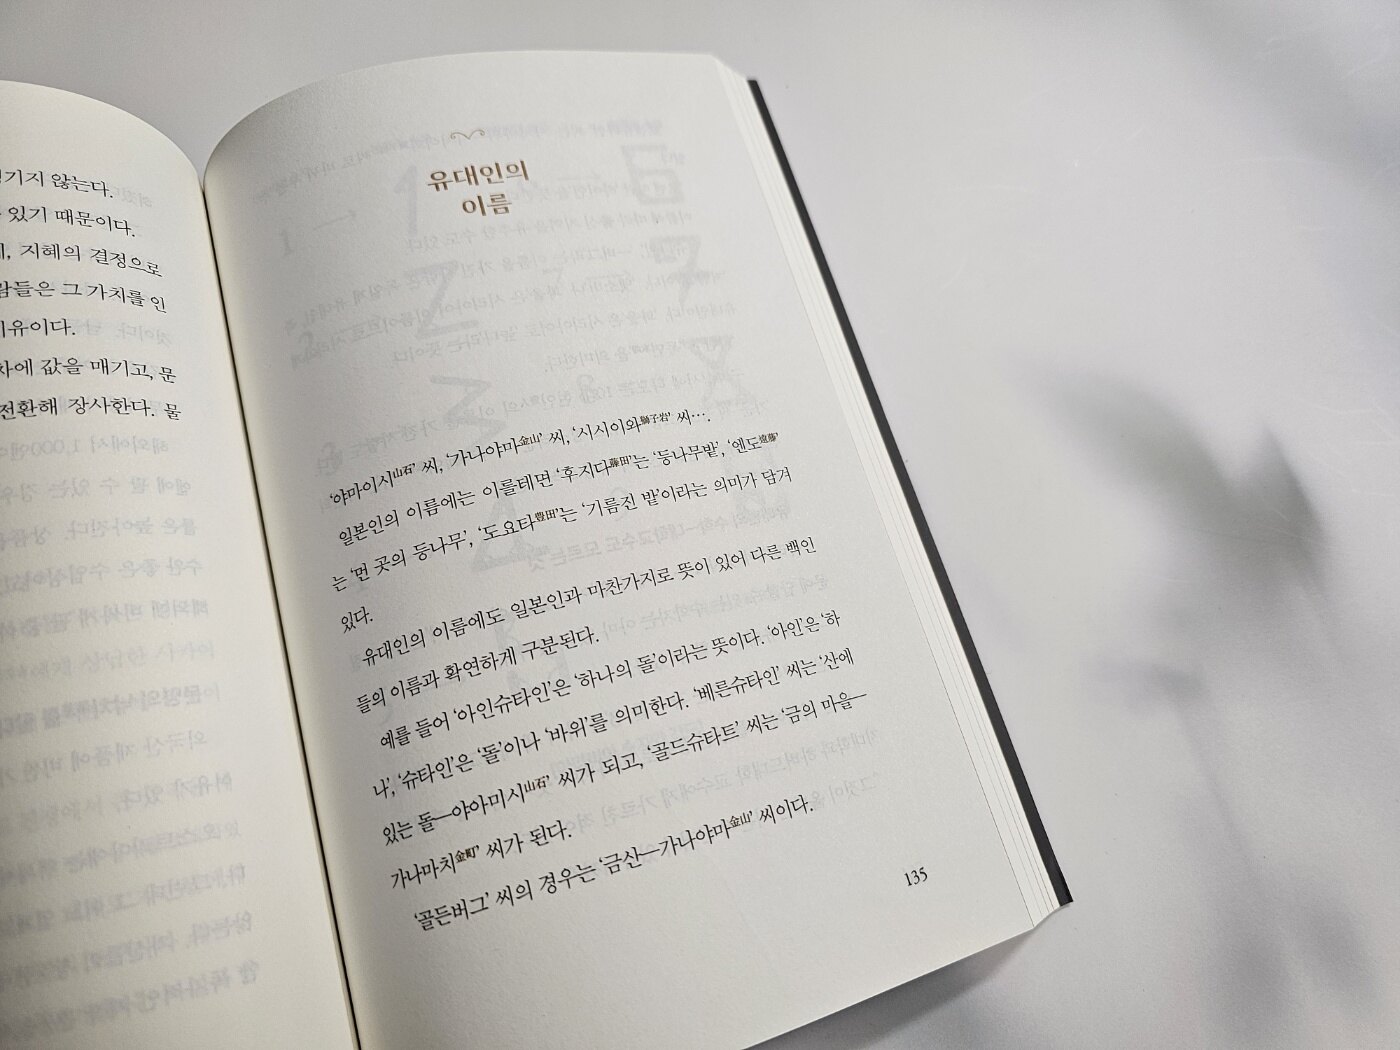 기지 않는다.
있기 때문이다.
지혜의 결정으로
람들은 그 가치를 인
이유이다.
차에 값을 매기고, 문
전환해 장사한다. 물
유대인의
이름
‘야마이시山石’ 씨, ‘가나야마金山’ 씨, ‘시시이와獅子岩’ 씨….
일본인의 이름에는 이를테면 ‘후지다藤田’는 ‘등나무밭’, ‘엔도遠藤’
는 ‘먼 곳의 등나무’, ‘도요타豊田’는 ‘기름진 밭’이라는 의미가 담겨
있다.
유대인의 이름에도 일본인과 마찬가지로 뜻이 있어 다른 백인
들의 이름과 확연하게 구분된다.
예를 들어 ‘아인슈타인’은 ‘하나의 돌’이라는 뜻이다. ‘아인’은 ‘하
나’, ‘슈타인’은 ‘돌’이나 ‘바위’를 의미한다. ‘베른슈타인’ 씨는 ‘산에
있는 돌—야아미시山石’ 씨가 되고, ‘골드슈타트’ 씨는 ‘금의 마을—
가나마치金町’ 씨가 된다.
‘골든버그’ 씨의 경우는 ‘금산—가나야마金山’ 씨이다.
135